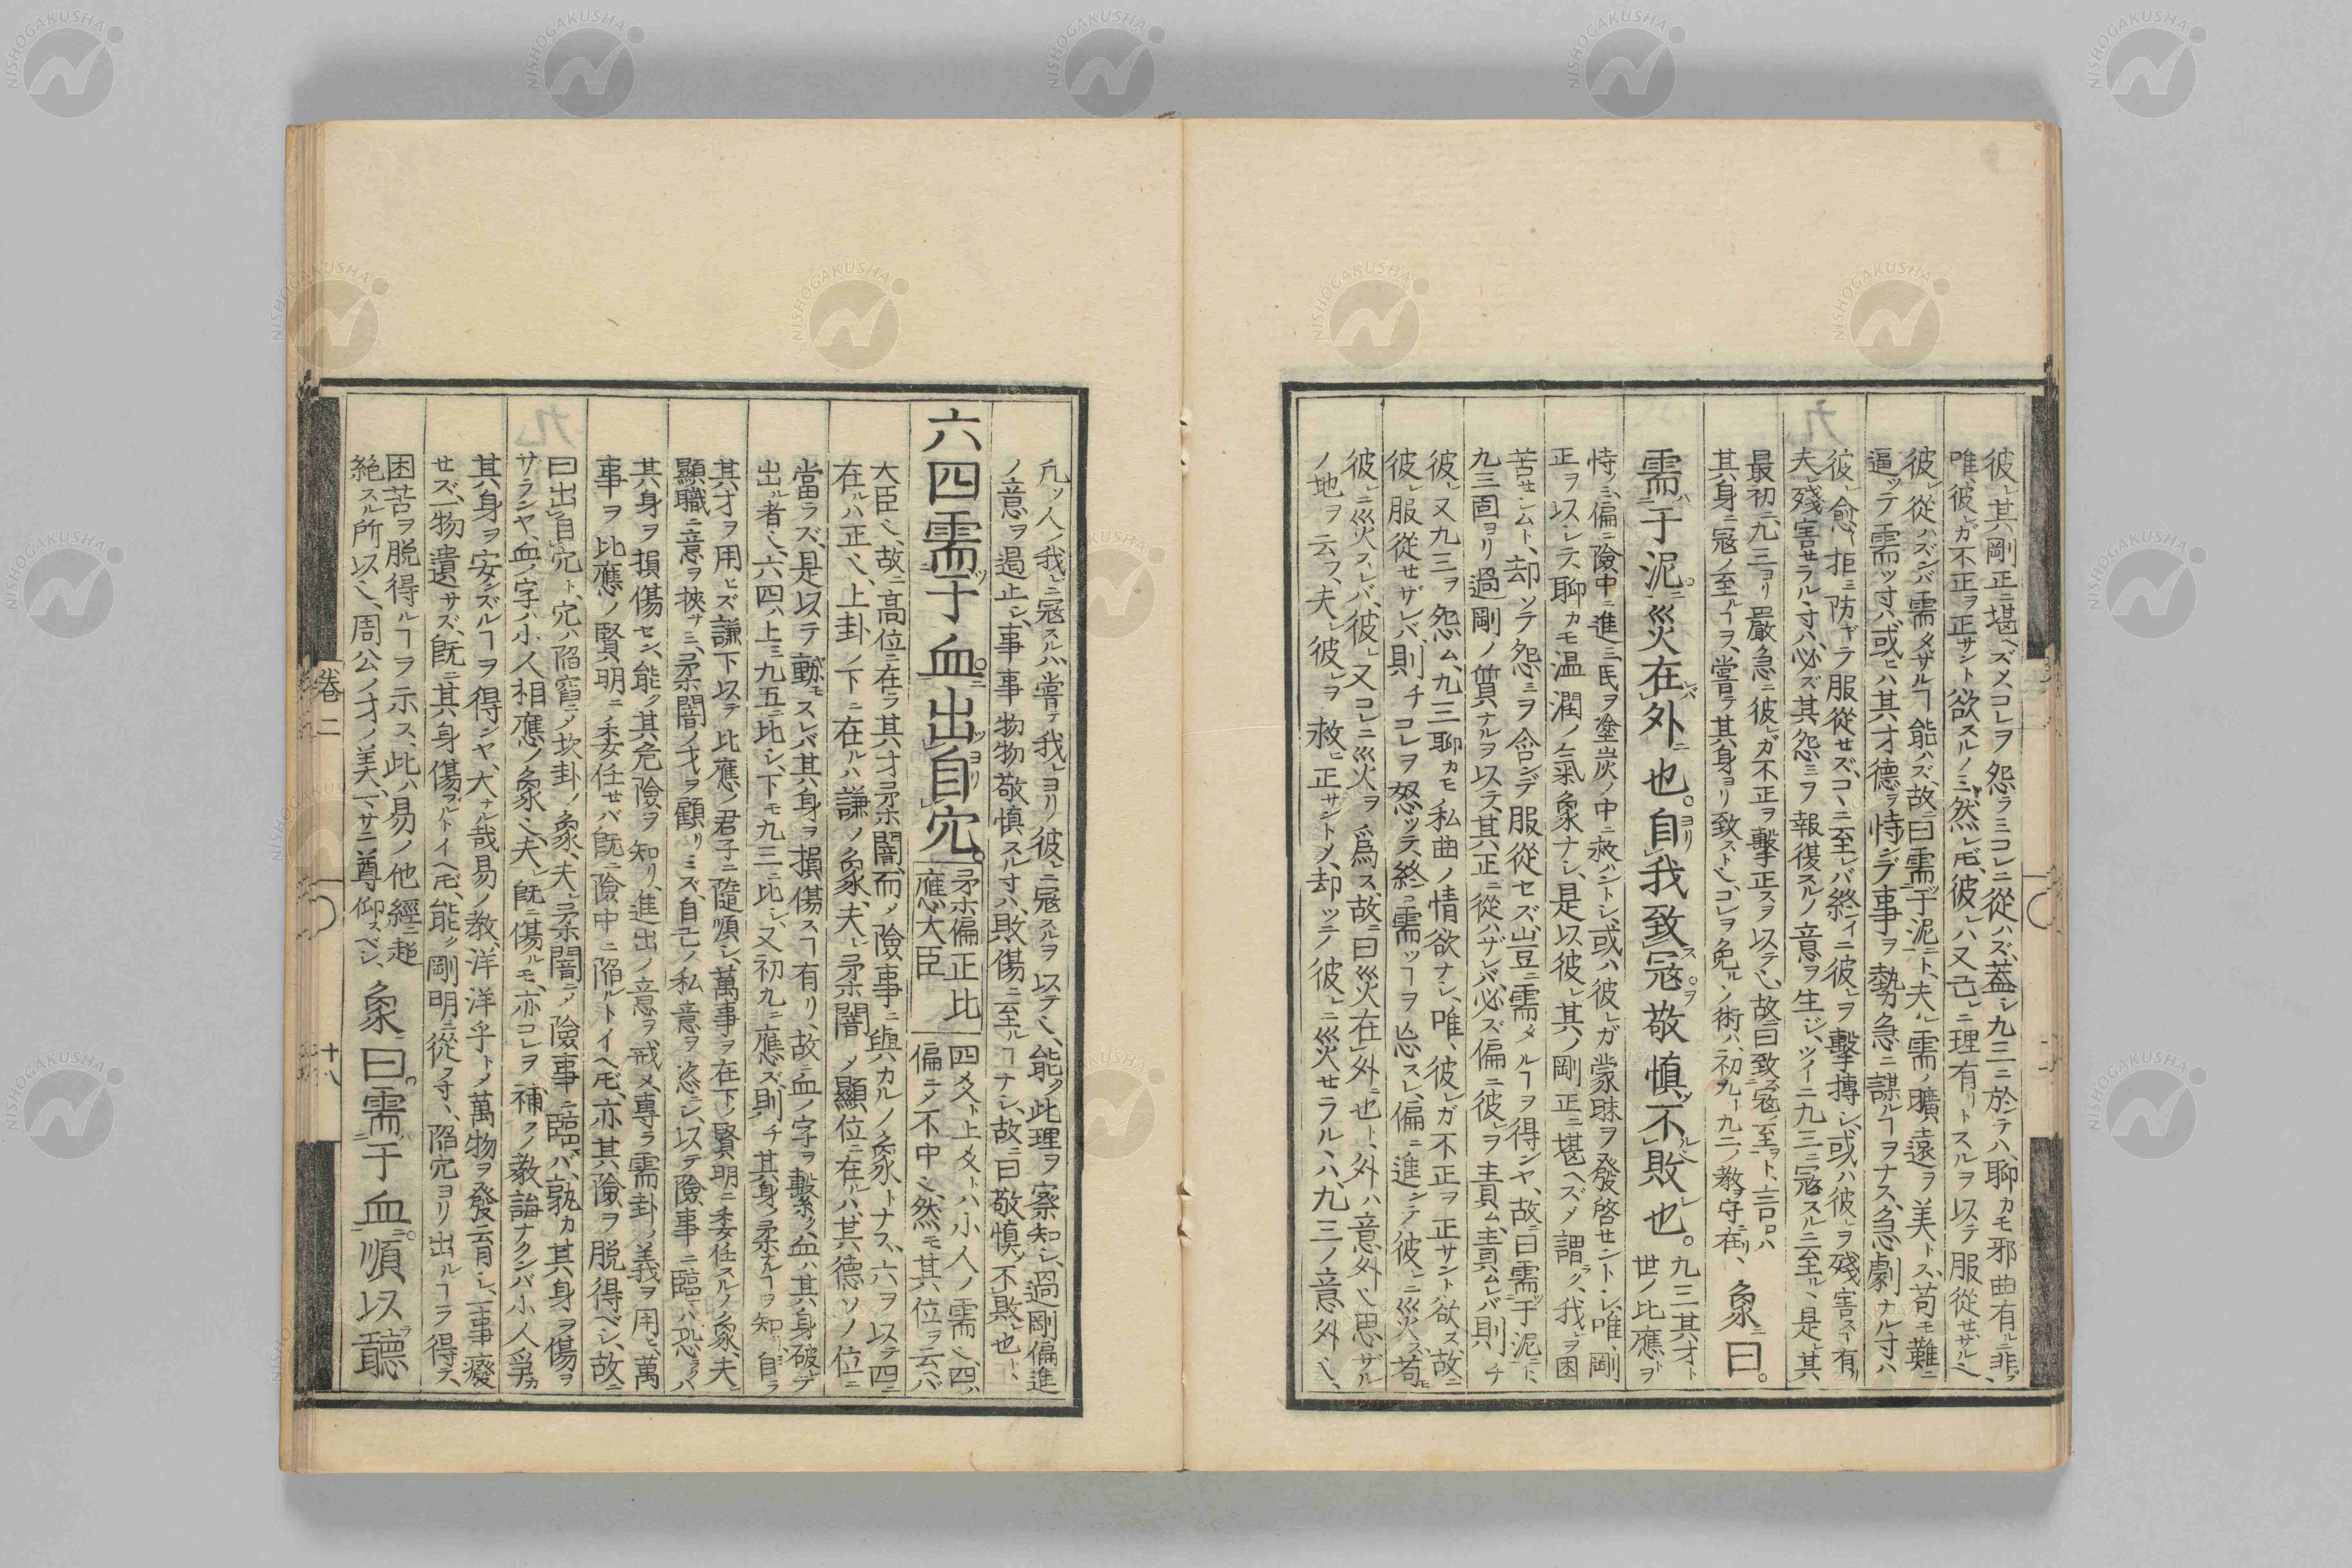 彼レ其剛正ニ堪ヘズメコレヲ怨ラミコレニ從ハズ、蓋シ九三ニ於テハ、聊カモ邪曲有ルニ非ズ、
唯、彼レガ不正ヲ正サント欲スルノミ、然レ𪜈、彼レハ又己レニ理有リトスルヲ以テ服從セザルヘ、
彼レ從ハズンバ需タザルヿ能ハズ、故ニ曰需ツ于泥ニト、夫レ需ノ曠遠ヲ美トス、苟モ難ニ
逼ッテ需ツ寸ハ、或ヒハ其才德ヲ恃ンデ事ヲ勢カ急ニ謀ルヿヲナス、急劇ナル寸ハ
彼レ愈拒ミ防ギテ服從セズ、コヽニ至レバ終イニ彼レヲ擊摶シ、或ハ彼レヲ殘害スヿ有リ
夫レ殘害セラル寸ハ、必ズ其怨ミヲ報復スルノ意ヲ生ジ、ツイニ九三ニ寇スルニ至ル、是レ其
最初ニ九三ヨリ嚴急ニ彼レガ不正ヲ擊正スヲ以テヘ、故ニ曰致ス寇ノ至ヲト、言ロハ
其身ニ寇ノ至ルヿヲ、嘗テ其身ヨリ致ストヘ、コレヲ免ルノ術ハ、初九ー九二ノ教ヲ守ニ在リ、象ニ曰。
需ハ于泥ニ。災在外ニ也。自我致ス寇ヲ。敬愼ッ不敗レ也。九三其才ト
世ノ比應トヲ
恃ノミ、偏ニ險中ニ進ミ民ヲ塗炭ノ中ニ救ハントシ、或ハ彼レガ蒙昧ヲ發啓セントシ、唯、剛
正ヲ以シテ、聊カモ温潤ノ氣象ナシ、是以彼レ其ノ剛正ニ堪ヘズメ謂ラク、我レヲ困
苦センムト、却ツテ怨ミヲ含ンデ服從セズ、豈ニ需タルヿヲ得ンヤ、故ニ曰需ツ于泥ニト、
九三固ヨリ過剛ノ質ナルヲ以テ、其正ニ從ハザレバ、必ズ偏ニ彼レヲ責ム、責ムレバ則チ
彼レ又九三ヲ怨ム、九三聊カモ私曲ノ情欲ナシ、唯、彼レガ不正ヲ正サント欲ス、故ニ
彼レ服從セザレバ、則チコレヲ怒ッテ、終ニ需ツヿヲ忘スレ、偏ニ進ンデ彼レニ災ス、苟モ
彼レニ災スレバ、彼レ又コレニ災ヲ爲ス、故ニ曰災在外ニ也ト、外ハ意外ヘ思ザル
ノ地ヲ云フ、夫レ彼レヲ救ヒ正サントメ、却ッテ彼レニ災セラルヽハ、九三ノ意外ヘ、
凡ソ人ノ我レニ寇スルハ、嘗テ我レヨリ彼レニ寇スルヲ以テヘ、能ク此理ヲ察知シ、過剛偏進
ノ意ヲ遏止シ、事事物物敬愼スル寸ハ、敗傷ニ至ルヿナシ、故ニ曰敬愼ノ不敗レ也ト、
六四需ツ于血ニ。出ッ自ヨリ穴。
柔偏正比
應大臣
四爻ト上爻トハ小人ノ需ヘ、四ハ
偏ニノ不中ヘ、然モ其位ヲ云バ
大臣ヘ、故ニ高位ニ在ラ其才柔闇、而メ險事ニ與カルノ象トナス、六ヲ以テ四ニ
在ルハ正ヘ、上卦ノ下ニ在ルハ謙ノ象、夫レ柔闇ノ顯位ニ在ルハ、其德ソノ位ニ
當ラズ、是以テ動モスレバ其身ヲ損傷スヿ有リ、故ニ血ノ字ヲ繫ク、血ハ其身破レテ
出ル者ヘ、六四ハ上ミ九五ニ比シ、下モ九三ニ比シ、又初九ニ應ズ、則チ其身ノ柔ナルヿヲ知リ、自ラ
其才ヲ用ヒズ謙下以テ比應ノ君子ニ隨順シ、萬事ヲ在下ノ賢明ニ委任スルノ象、夫ニ
顯職ニ意ヲ挾サミ、柔闇ノ才ヲ顧リミズ、自己ノ私意ヲ恣ニシ、以テ險事ニ臨バ、恐ラクハ
其身ヲ損傷セン、能ク其危險ヲ知リ、進出ノ意ヲ戒メ、專ラ需卦ノ義ヲ用ヒ、萬
事ヲ比應ノ賢明ニ委任セバ既ニ險中ニ陷ルトイヘ𪜈、亦其險ヲ脫得ベシ、故ニ
曰出自穴ト、穴ハ陷窞ノ坎卦ノ象、夫レ柔闇ニノ險事ニ臨バ、孰カ其身ヲ傷ヲ
サランヤ、血ノ字ハ小人相應ノ象ヘ、夫レ既ニ傷ルモ、亦コレヲ補フノ教誨ナクンバ小人爭カ
其身ヲ安ンズルヿヲ得ンヤ、大ナル哉易ノ教、洋洋乎トメ萬物ヲ發育シ、一事癈
セズ、一物遺サズ、既ニ其身傷ブルトイヘ𪜈、能ク剛明ニ從フ寸ハ、陷穴ヨリ出ルヿヲ得テ、
困苦ヲ脫得ルヿヲ示ス、此ハ易ノ他經ニ超
絶スル所以ヘ、周公ノ才ノ美、マサニ尊仰スベシ、象ニ曰。需ハ于血ニ。順以テ聽
卷二
十八